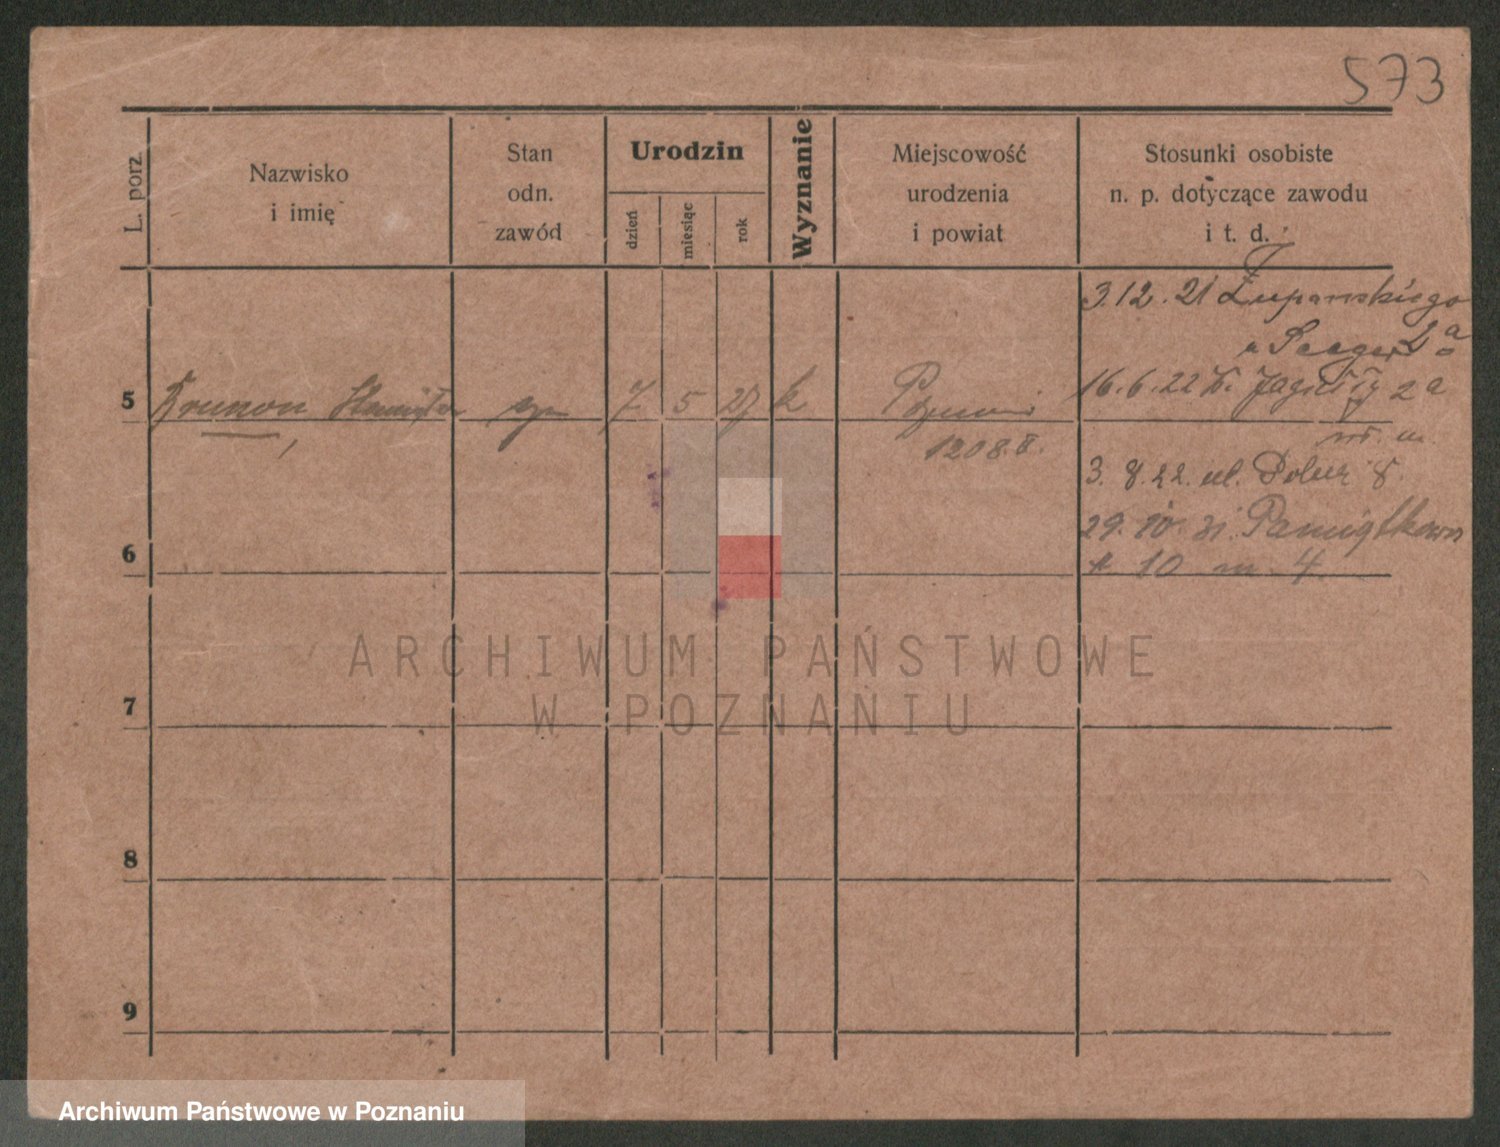 573
L. porz.
Nazwisko
i imię
Stan
odn.
zawód
Urodzin
dzień
miesiąc
rok
Wyznanie
Miejscowość
urodzenia
i powiat
Stosunki osobiste
n. p. dotyczące zawodu
i t. d.
3.12.21 Żupańskiego
2a
16.6.22
2a
5 Brunon syn 7 5 27 k
1208.
3. 8. 22. ul.
8.
29. 10. 31. Pamiątkowa
10 m 4.
6
7
8
9
ARCHIWUM PAŃSTWOWE
W POZNANIU
Archiwum Państwowe w Poznaniu